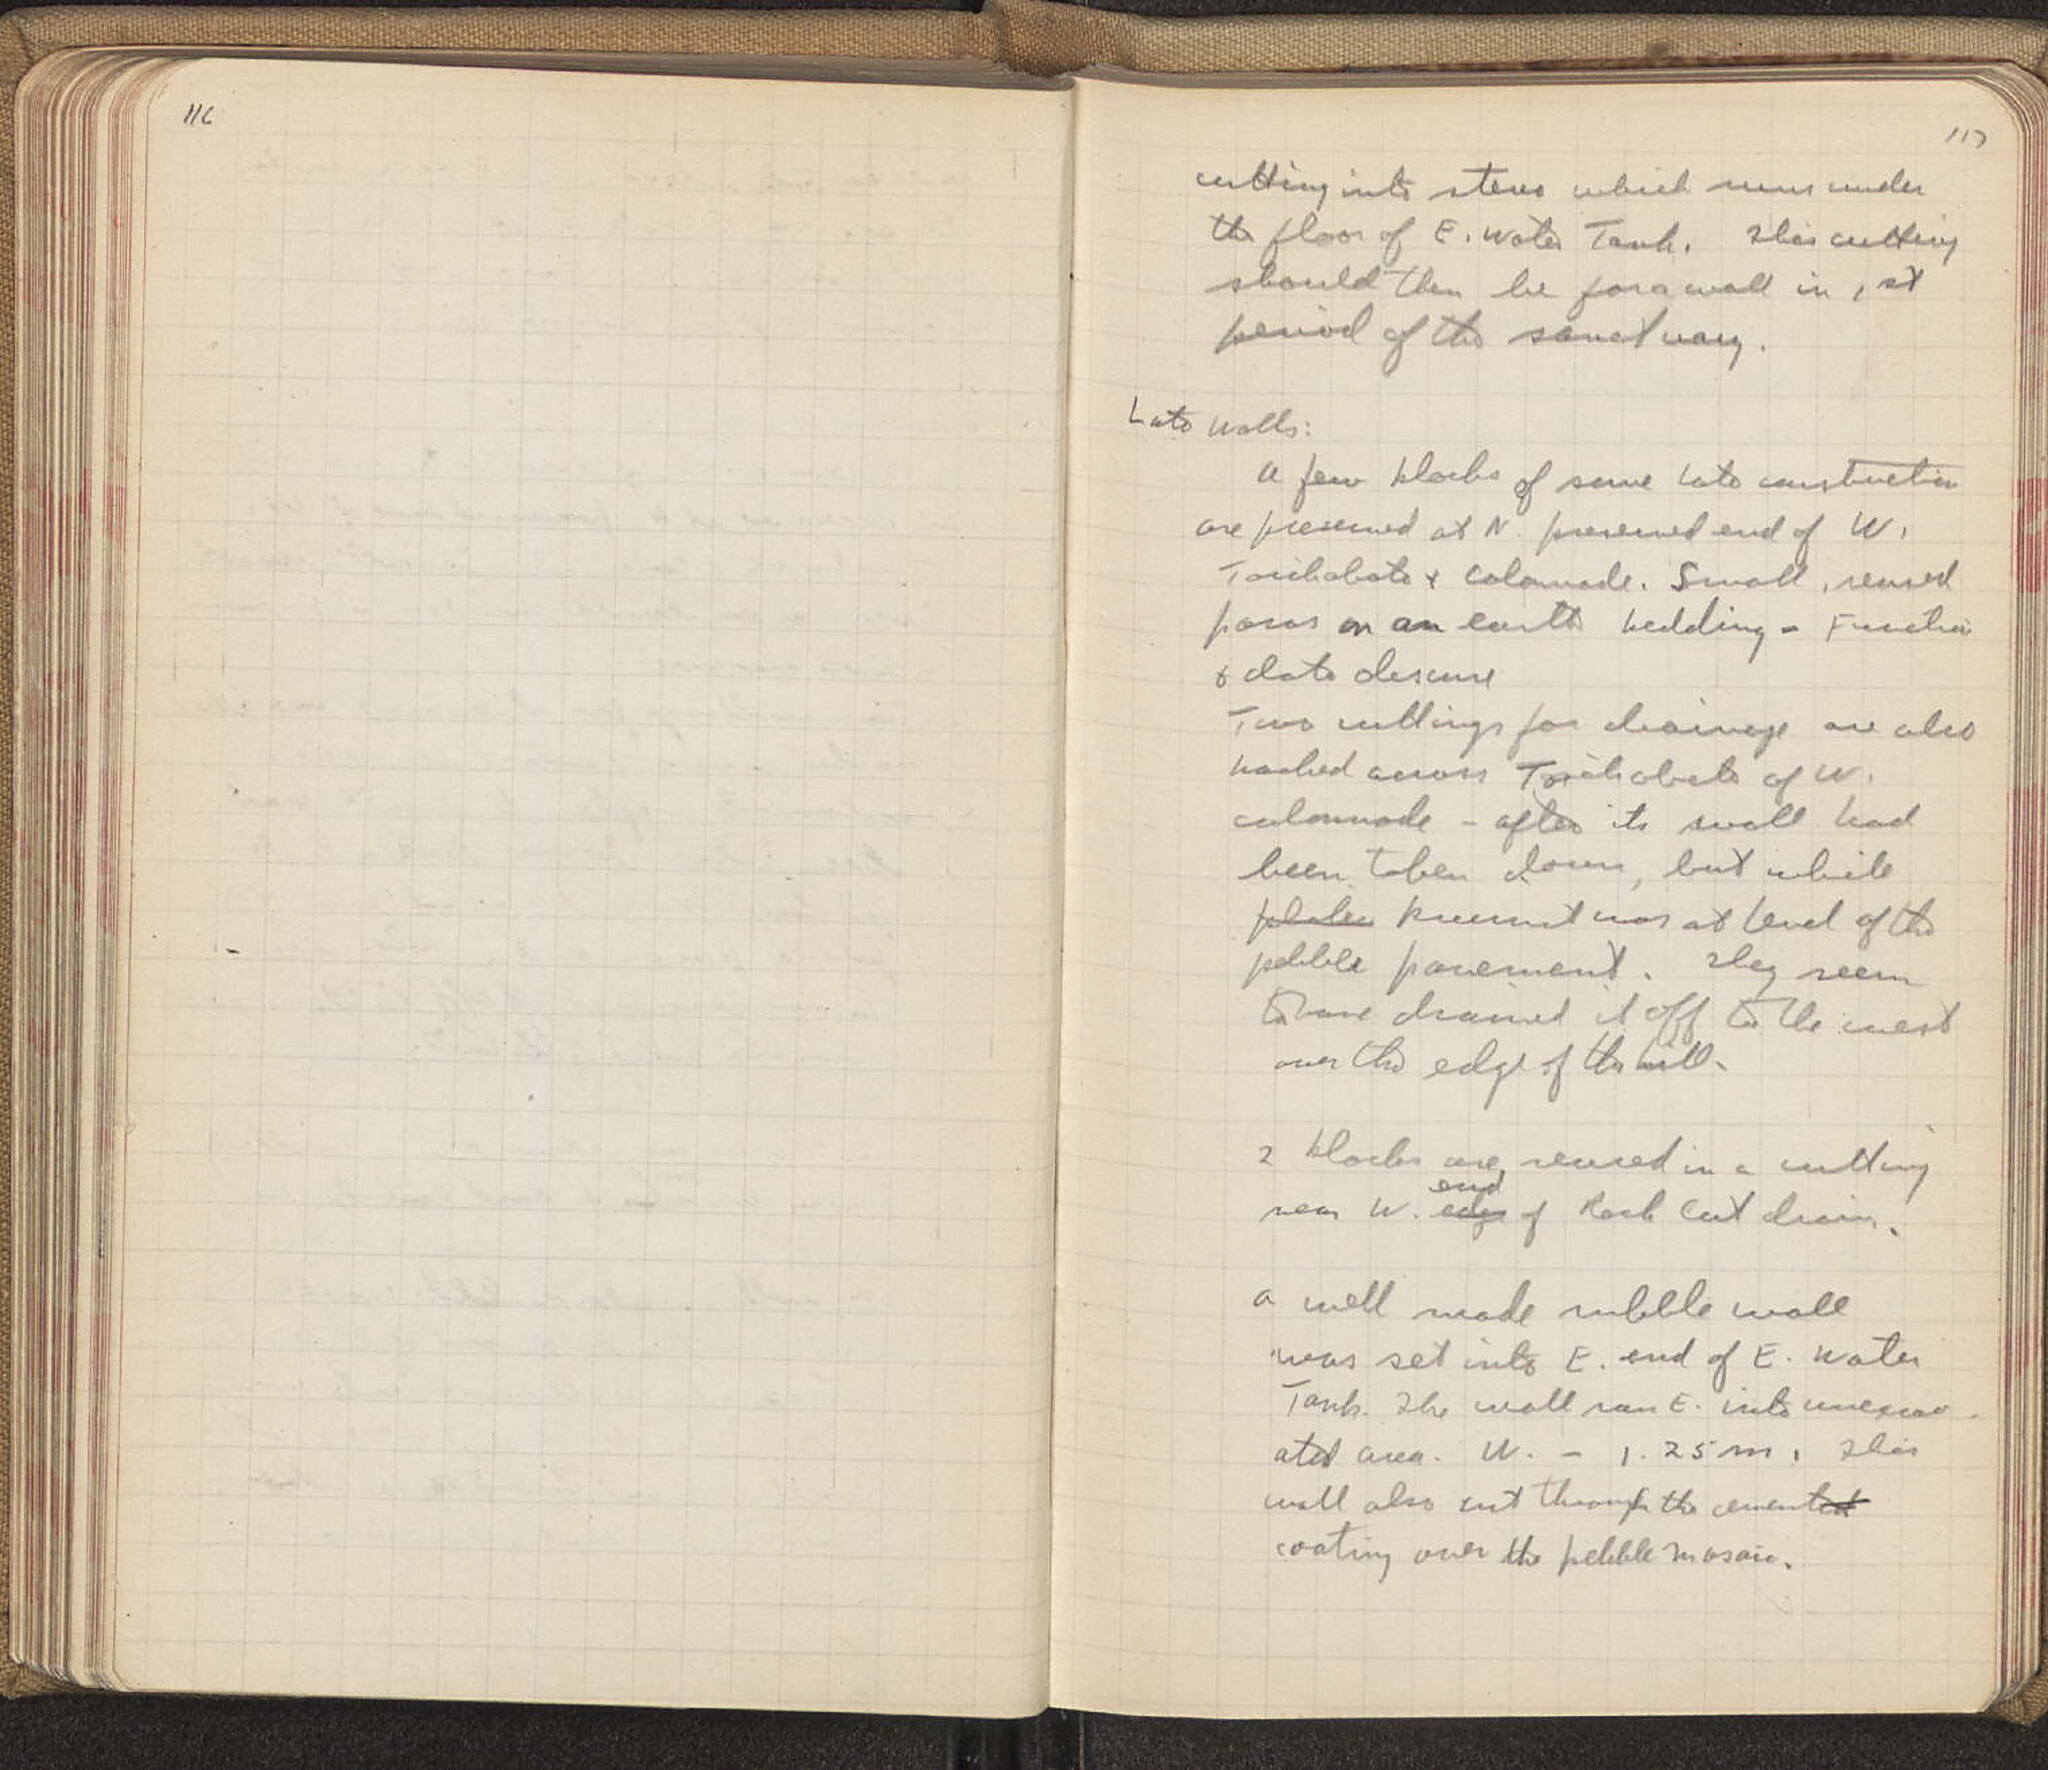 116
117
cutting into stereo which runs under
the floor of E. Water Tank. This cutting
should then be for a wall in 1st
period of the sanctuary.
Late Walls:
A few blocks of some late construction
are preserved at N. preserved end of W.
Toichobate & Colonnade. Small, reused
poros on an earth bedding - Function
& date obscure
Two cuttings for drainage are also
hacked across Toichobate of W.
colonnade - after its wall had
been taken down, but while
was at level of the
pebble pavement. They seem
to have drained it off to the west
over the edge of the hill.
2 blocks are reused in a cutting
end
near W. edge of Rock Cut drain.
A well made rubble wall
was set into E. end of E. Water
Tank. The wall ran E. into unexcav-
ated area. W. - 1.25 m. This
wall also cut through the cemented
coating over the pebble mosaic.